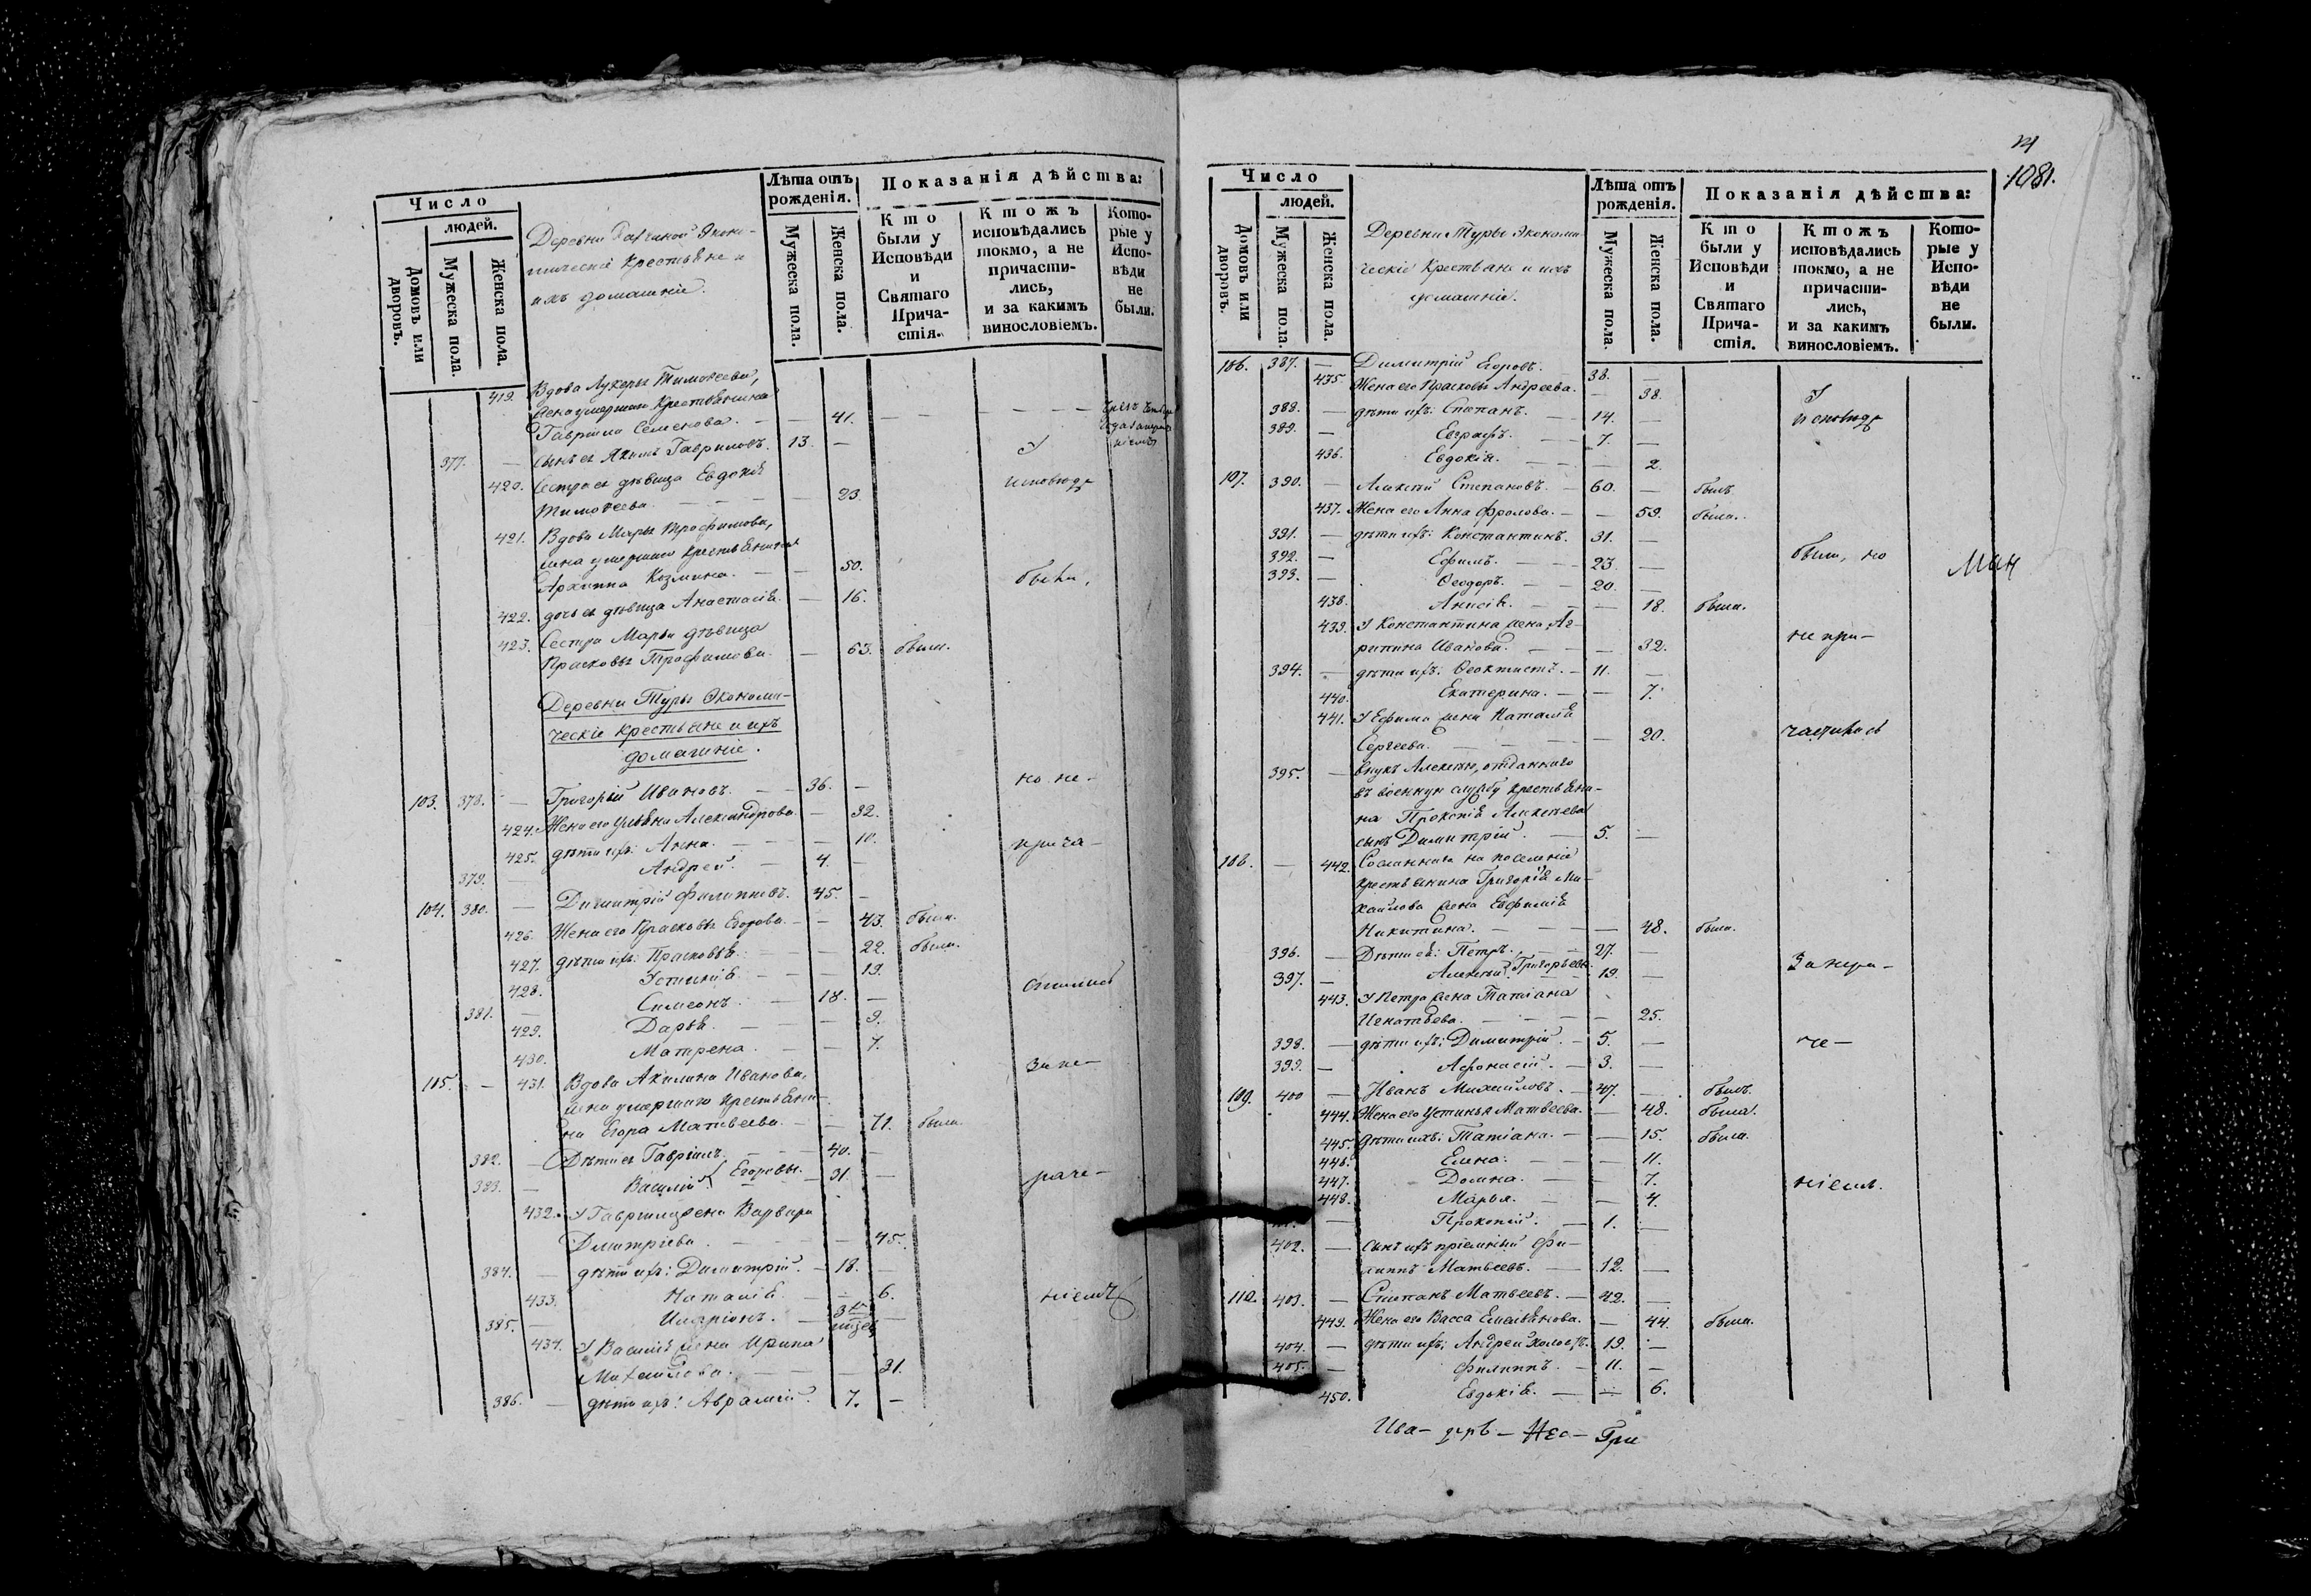 Число
людей.
Домовъ или дворовъ.
Мужеска пола.
Женска пола.
Деревни Эконо-
мическіе Крестьяне и
ихъ домашніе.
Лѣта отъ рожденія.
Мужеска пола.
Женска пола.
Показанія дѣйства:
Кто были у Исповѣди и Святаго Прича-стія.
Ктожъ исповѣдались токмо, а не причасти-лись, и за какимъ винословіемъ.
Кото-рые у Испо-вѣди не были.
419. Вдова Лукерья Тимоѳеева,
жена умершаго Крестьянина
Гавріила Семенова. — — 41. — — — —
377. — Сынъ ея Акимъ Гавриловъ. 13. — У
420. Сестра ея дѣвица Евдокія исповѣди
Тимоѳеева. — — — — 23.
421. Вдова Марья Трофимова,
жена умершаго крестьянина
Архиппа Козмина. — — 50. были,
422. дочь ея дѣвица Анастасія. — 16.
423. Сестра Марьи дѣвица
Прасковья Трофимова. — 63. была.
Деревни Туры Экономи-
ческіе крестьяне и ихъ
домашніе.
но не-
103. 378. — Григорій Ивановъ. — — 36. —
424. Жена его Ульяна Александрова. — 32.
425. дѣти ихъ: Анна. — — — 10. прича-
379. — Андрей. — 4. —
104. 380. — Димитрій Филипповъ. 45. —
426. Жена его Прасковья Егорова. — — 43. была.
427. дѣти ихъ: Прасковья. — — 22. была.
428. Устинія. — — — 19.
стились
381. — Симеонъ. — 18. —
429. Дарья. — — — 9.
430. Матрена. — — 7.
за не-
105. — 431. Вдова Акилина Иванова,
жена умершаго крестьяни-
на Егора Матвеева. — — 71. была.
382. — Дѣти ея Гавріилъ. — 40. —
383. — Василій } Егоровы. — 31. — раче-
432. У Гавріила жена Варвара
Дмитріева. — — — — 45.
384. — дѣти ихъ: Димитрій. — 18. —
433. Наталія. — — 6. ніемъ
385. — Иларіонъ. —
434. У Василія жена Ирина
Михайлова. — — — 31.
386. — дѣти ихъ: Аврамій. 7. —
1081.
Число
людей.
Домовъ или дворовъ.
Мужеска пола.
Женска пола.
Деревни Туры Экономи-
ческіе Крестьяне и ихъ
домашніе.
Лѣта отъ рожденія.
Мужеска пола.
Женска пола.
Показанія дѣйства:
Кто были у Исповѣди и Святаго Прича-стія.
Ктожъ исповѣдались токмо, а не причасти-лись, и за какимъ винословіемъ.
Кото-рые у Испо-вѣди не были.
106. 387. — Димитрій Егоровъ. 38. —
435. Жена его Прасковья Андреева. — 38. У
388. — дѣти ихъ: Степанъ. — 14. — исповѣди
389. — Евграфъ. — — 7. —
436. Евдокія. — — — 2.
107. 390. — Алексѣй Степановъ. — 60. — былъ
437. Жена его Анна Фролова. — — 59. была.
391. — дѣти ихъ: Константинъ. 31. —
392. — Ефимъ. — — 23. — были, но
393. — Ѳеодоръ. — — 20. —
438. Анисія. — — — 18. была.
439. У Константина жена Аг-
рипина Иванова. — — — 32. не при-
394. — дѣти ихъ: Ѳеоктистъ. — 11. —
440. Екатерина. — — 7.
441. У Ефима жена Наталія
Сергеева. — — — — 20. чащились
395. — Внукъ Алексѣя, отданнаго
въ военную службу крестьяни-
на Прокопія Алексѣева
сынъ Димитрій. — 5. —
108. — 442. Сосланнаго на поселеніе
крестьянина Григорія Ми-
хайлова жена Евфимія
Никитина. — — — — 48. была.
396. — Дѣти ея: Петръ. — — 27. —
397. — Алексѣй } Григорьевы. 19. — за нера-
443. У Петра жена Татіана
Игнатьева. — — — — 25.
398. — дѣти ихъ: Димитрій. — 5. — че-
399. — Афонасій. — 3. —
109. 400 — Иванъ Михайловъ. — 47. — былъ.
444. Жена его Устинья Матвеева. — 48. была.
445. Дѣти ихъ: Татіана. — — 15. была.
446. Елена. — — — 11.
447. Домна. — — 7. ніемъ.
448. Марья. — — 4.
— Прокопій. — 1. —
402. — сынъ ихъ пріемный Фи-
липпъ Матвеевъ. — 12. —
110. 403. — Степанъ Матвеевъ. — 42. —
449. Жена его Васса Емельянова. — 44. была.
404. — дѣти ихъ: Андрей холостъ. 19. —
405. — Филиппъ. — 11. —
450. Евдокія. — — 6.